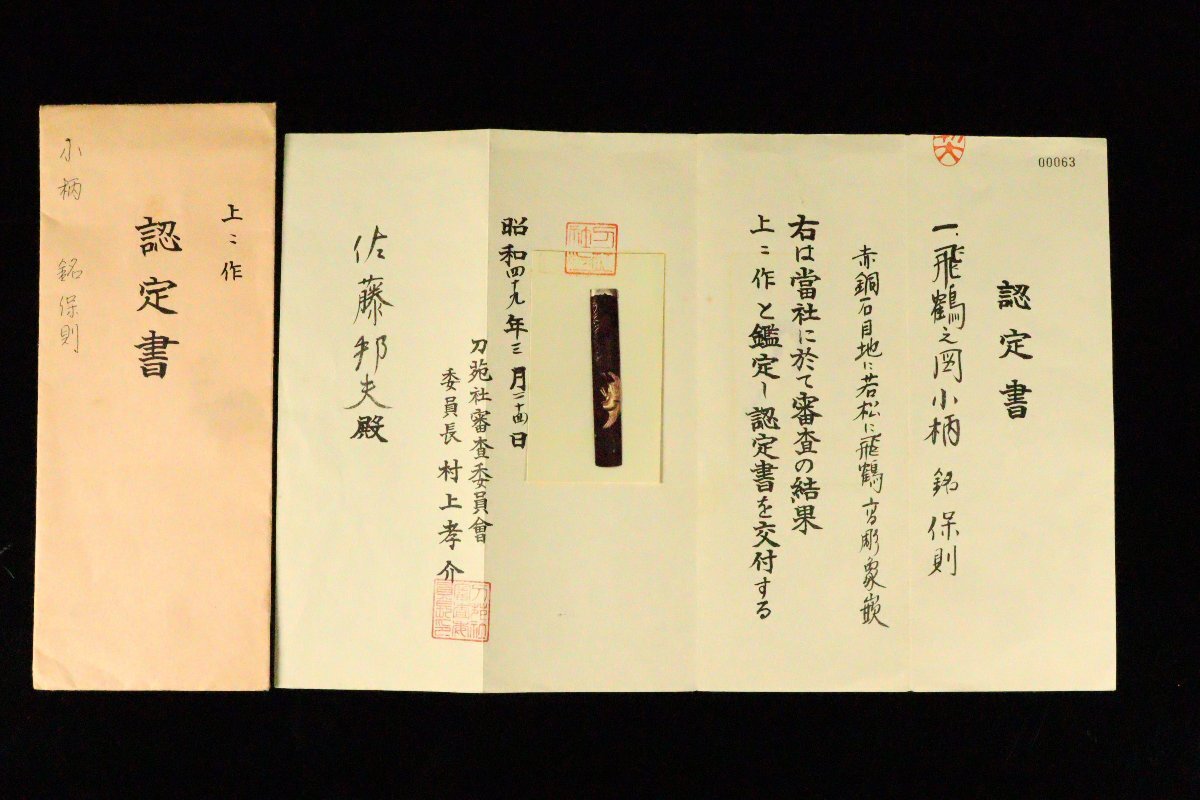 00063
認定書
一、飛鶴之図小柄 銘 保則
赤銅石目地に若松に飛鶴高彫象嵌
右は當社に於て審査の結果
上々作と鑑定し認定書を交付する
昭和四十九年三月二十四日
刀苑社審査委員會
委員長 村上孝介
佐藤邦夫殿
上々作
認定書
小柄 銘 保則